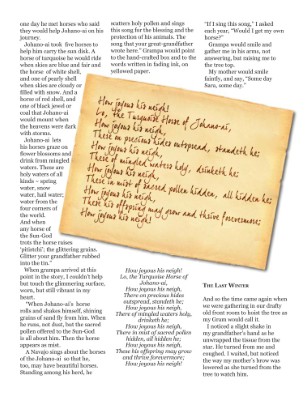 one day he met horses who said
they would help Johano-ai on his
journey.
Johano-ai took five horses to
help him carry the sun disk. A
horse of turquoise he would ride
when skies are blue and fair and
the horse of white shell,
and one of pearly shell
when skies are cloudy or
filled with snow. And a
horse of red shell, and
one of black jewel or
coal that Johano-ai
would mount when
the heavens were dark
with storms.
Johano-ai lets
his horses graze on
flower blossoms and
drink from mingled
waters. These are
holy waters of all
kinds – spring
water, snow
water, hail water,
water from the
four corners of
the world.
And when
any horse of
the Sun-God
trots the horse raises
the glittering grains.
Glitter your grandfather rubbed
into the tin."
When grandpa arrived at this
point in the story, I couldn't help
but touch the glimmering surface,
worn, but still vibrant in my
heart.
"When Johano-ai's horse
rolls and shakes himself, shining
grains of sand fly from him. When
he runs, not dust, but the sacred
pollen offered to the Sun-God
is all about him. Then the horse
appears as mist.
A Navajo sings about the horses
of the Johano-ai so that he,
too, may have beautiful horses.
Standing among his herd, he
scatters holy pollen and sings
this song for the blessing and the
protection of his animals. The
song that your great-grandfather
wrote here." Grandpa would point
to the hand-crafted box and to the
words written in fading ink, on
yellowed paper.
How joyous his neigh!
Lo, the Turquoise Horse of Johano-ai,
How joyous his neigh,
There on precious hides outspread, standeth he;
How joyous his neigh,
There of mingled waters holy, drinketh he;
How joyous his neigh,
There in mist of sacred pollen hidden, all hidden he;
How joyous his neigh,
These his offspring may grow and thrive forevermore;
How joyous his neigh!
How joyous his neigh!
Lo, the Turquoise Horse of
Johano-ai,
How joyous his neigh,
There on precious hides
outspread, standeth he;
How joyous his neigh,
There of mingled waters holy,
drinketh he;
How joyous his neigh,
There in mist of sacred pollen
hidden, all hidden he;
How joyous his neigh,
These his offspring may grow
and thrive forevermore;
How joyous his neigh!
"If I sing this song," I asked
each year, "Would I get my own
horse?"
Grandpa would smile and
gather me in his arms, not
answering, but raising me to
the tree top.
My mother would smile
faintly, and say, "Some day
Sara, some day."
THE LAST WINTER
And so the time came again when
we were gathering in our drafty
old front room to hoist the tree as
my Gram would call it.
I noticed a slight shake in
my grandfather's hand as he
unwrapped the tissue from the
star. He turned from me and
coughed. I waited, but noticed
the way my mother's brow was
lowered as she turned from the
tree to watch him.